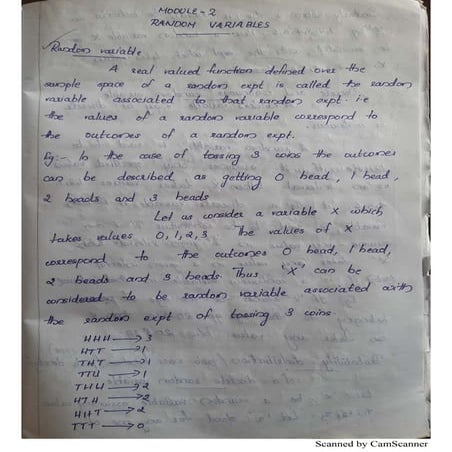 MODULE - 2
RANDOM VARIABLES
Random variable
A real valued function defined over the
sample space of a random expt is called the random
variable associated to that random expt. i.e
the values of a random variable correspond to
the outcomes of a random expt.
Eg:- In the case of tossing 3 coins the outcomes
can be described as getting 0 head, 1 head,
2 heads and 3 heads
Let us consider a variable X which
takes values 0, 1, 2, 3 The values of X
correspond to the outcomes 0 head, 1 head,
2 heads and 3 heads Thus 'X' can be
considered to be random variable associated with
the random expt of tossing 3 coins.
HHH → 3
HTT → 1
THT → 1
TTH → 1
THH → 2
HTH → 2
HHT → 2
TTT → 0
Scanned by CamScanner